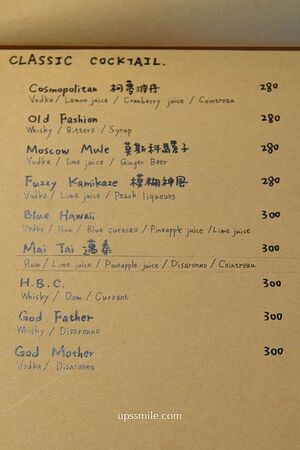 CLASSIC COCKTAIL.
Cosmopolitan 柯夢波丹 280
Vodka / Lemon juice / Cranberry juice / Cointreau
Old Fashion 280
Whisky / Bitters / Syrup
Moscow Mule 莫斯科馬騾子 280
Vodka / Lime juice / Ginger Beer
Fuzzy Kamikaze 模糊神風 280
Vodka / Lime juice / Peach liqueurs
Blue Hawaii 300
Vodka / Rum / Blue curacao / Pineapple juice / Lime juice
Mai Tai 邁泰 300
Rum / Lime juice / Pineapple juice / Disaronno / Cointreau
H.B.C. 300
Whisky / Dom / Currant
God Father 300
Whisky / Disaronno
God Mother 300
Vodka / Disaronno
upssmile.com